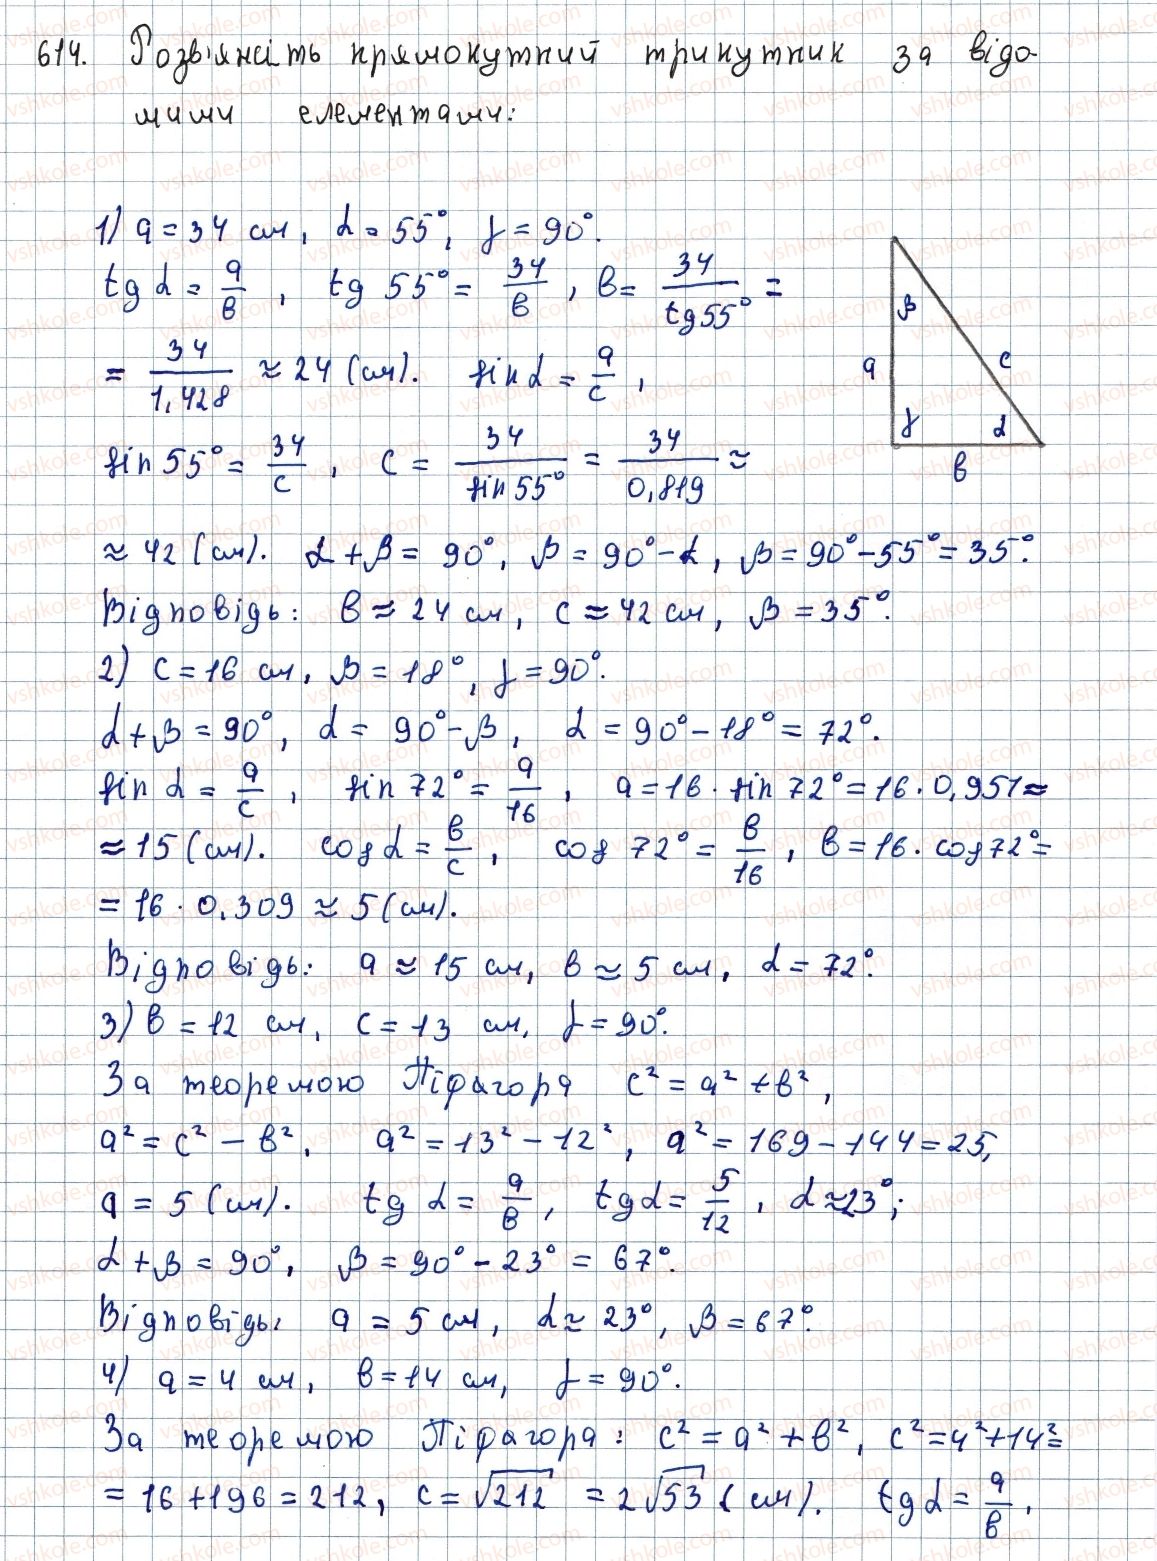 614. Розв'яжіть прямокутний трикутник за відо-
мими елементами:
1) a = 34 см, α = 55°, γ = 90°.
tg α = a/b, tg 55° = 34/b, b = 34/tg 55° =
= 34/1,428 ≈ 24 (см). sin α = a/c,
sin 55° = 34/c, c = 34/sin 55° = 34/0,819 ≈
≈ 42 (см). α + β = 90°, β = 90° - α, β = 90° - 55° = 35°.
Відповідь: b ≈ 24 см, c ≈ 42 см, β = 35°.
β
a
c
γ
α
b
2) c = 16 см, β = 18°, γ = 90°.
α + β = 90°, α = 90° - β, α = 90° - 18° = 72°.
sin α = a/c, sin 72° = a/16, a = 16 · sin 72° = 16 · 0,951 ≈
≈ 15 (см). cos α = b/c, cos 72° = b/16, b = 16 · cos 72° =
= 16 · 0,309 ≈ 5 (см).
Відповідь: a ≈ 15 см, b ≈ 5 см, α = 72°.
3) b = 12 см, c = 13 см, γ = 90°.
За теоремою Піфагора c² = a² + b²,
a² = c² - b², a² = 13² - 12², a² = 169 - 144 = 25,
a = 5 (см). tg α = a/b, tg α = 5/12, α ≈ 23°;
α + β = 90°, β = 90° - 23° = 67°.
Відповідь: a = 5 см, α ≈ 23°, β = 67°.
4) a = 4 см, b = 14 см, γ = 90°.
За теоремою Піфагора: c² = a² + b², c² = 4² + 14² =
= 16 + 196 = 212, c = √212 = 2√53 (см). tg α = a/b,